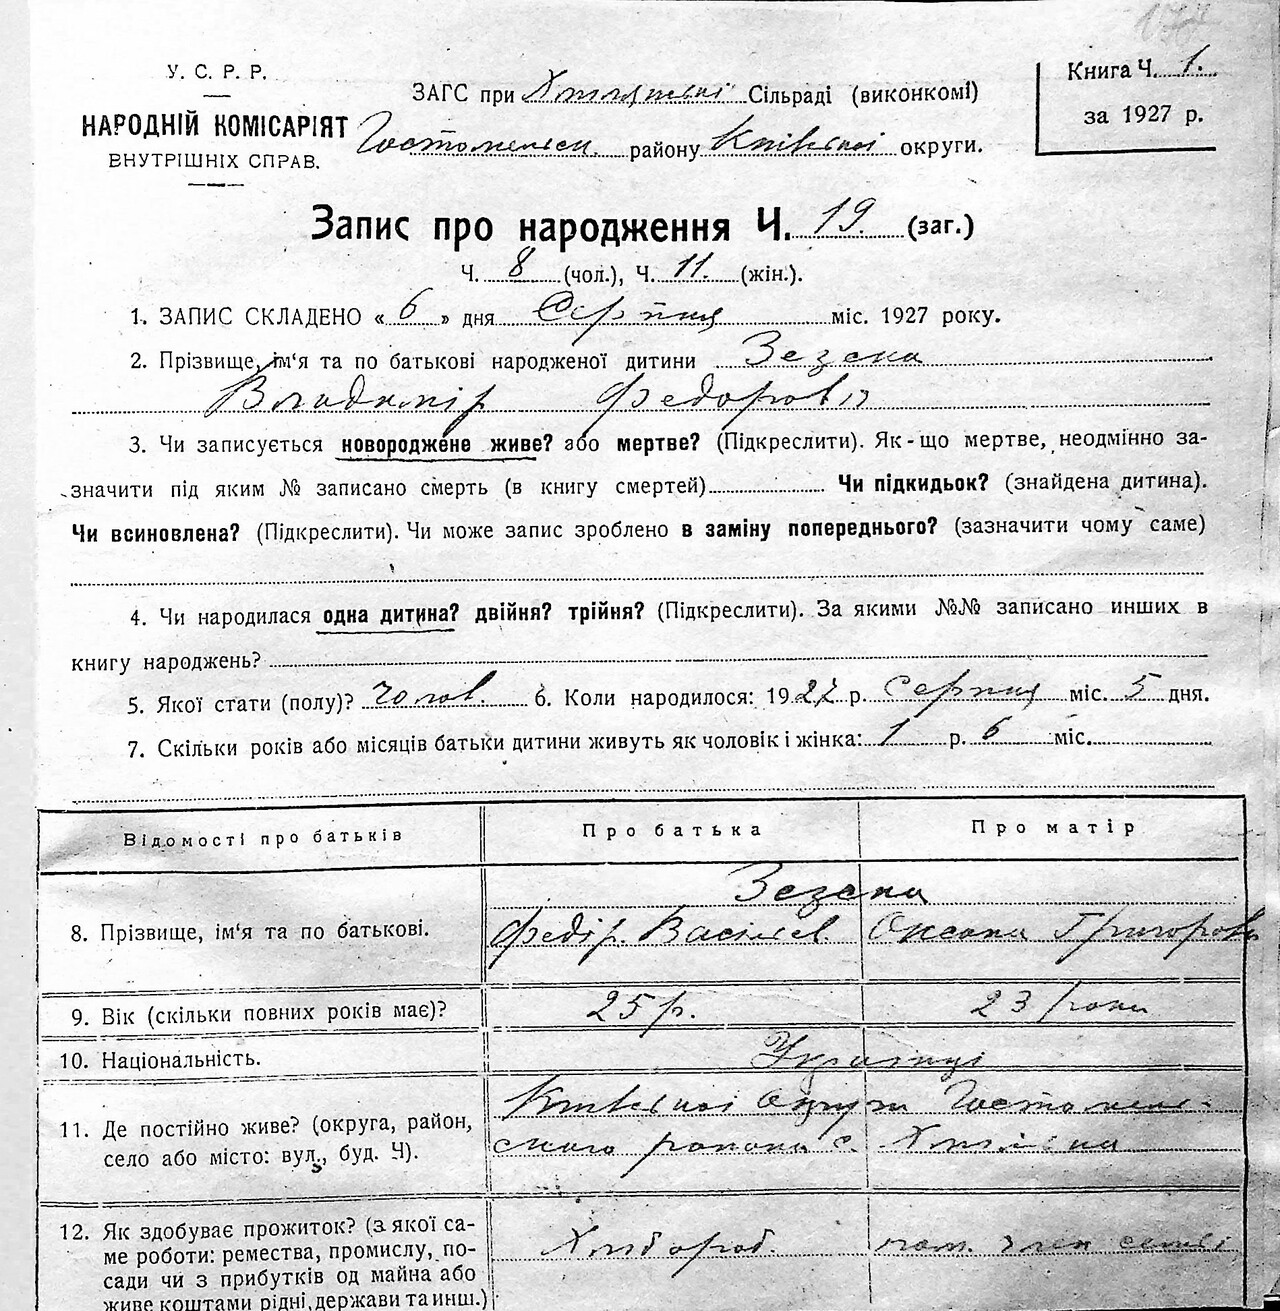 У. С. Р. Р.
НАРОДНІЙ КОМІСАРІЯТ
ВНУТРІШНІХ СПРАВ.
ЗАГС при Сільраді (виконкомі)
Гостомельск. району Київської округи.
Книга Ч. 1.
за 1927 р.
Запис про народження Ч. 19. (заг.)
Ч. 8 (чол.), Ч. 11. (жін.).
1. ЗАПИС СКЛАДЕНО «6» дня Серпня міс. 1927 року.
2. Прізвище, ім'я та по батькові народженої дитини Зезека
Владимір Федоров
3. Чи записується новороджене живе? або мертве? (Підкреслити). Як-що мертве, неодмінно за-
значити під яким № записано смерть (в книгу смертей) Чи підкидьок? (знайдена дитина).
Чи всиновлена? (Підкреслити). Чи може запис зроблено в заміну попереднього? (зазначити чому саме)
4. Чи народилася одна дитина? двійня? трійня? (Підкреслити). За якими №№ записано инших в
книгу народжень?
5. Якої стати (полу)? чолов. 6. Коли народилося: 1927 р. серпня міс. 5 дня.
7. Скільки років або місяців батьки дитини живуть як чоловік і жінка: 1 р. 6 міс.
Відомості про батьків Про батька Про матір
Зезека
8. Прізвище, ім'я та по батькові. Федір. Васілев. Оксана Григоров
9. Вік (скільки повних років має)? 25 р. 23 роки
10. Національність. Українці
11. Де постійно живе? (округа, район,
село або місто: вул., буд. Ч).
Київської Округи Гостомель-
ского района с.
12. Як здобуває прожиток? (з якої са-
ме роботи: ремества, промислу, по-
сади чи з прибутків од майна або
живе коштами рідні, держави та инш.)
Хлібороб. член семьі